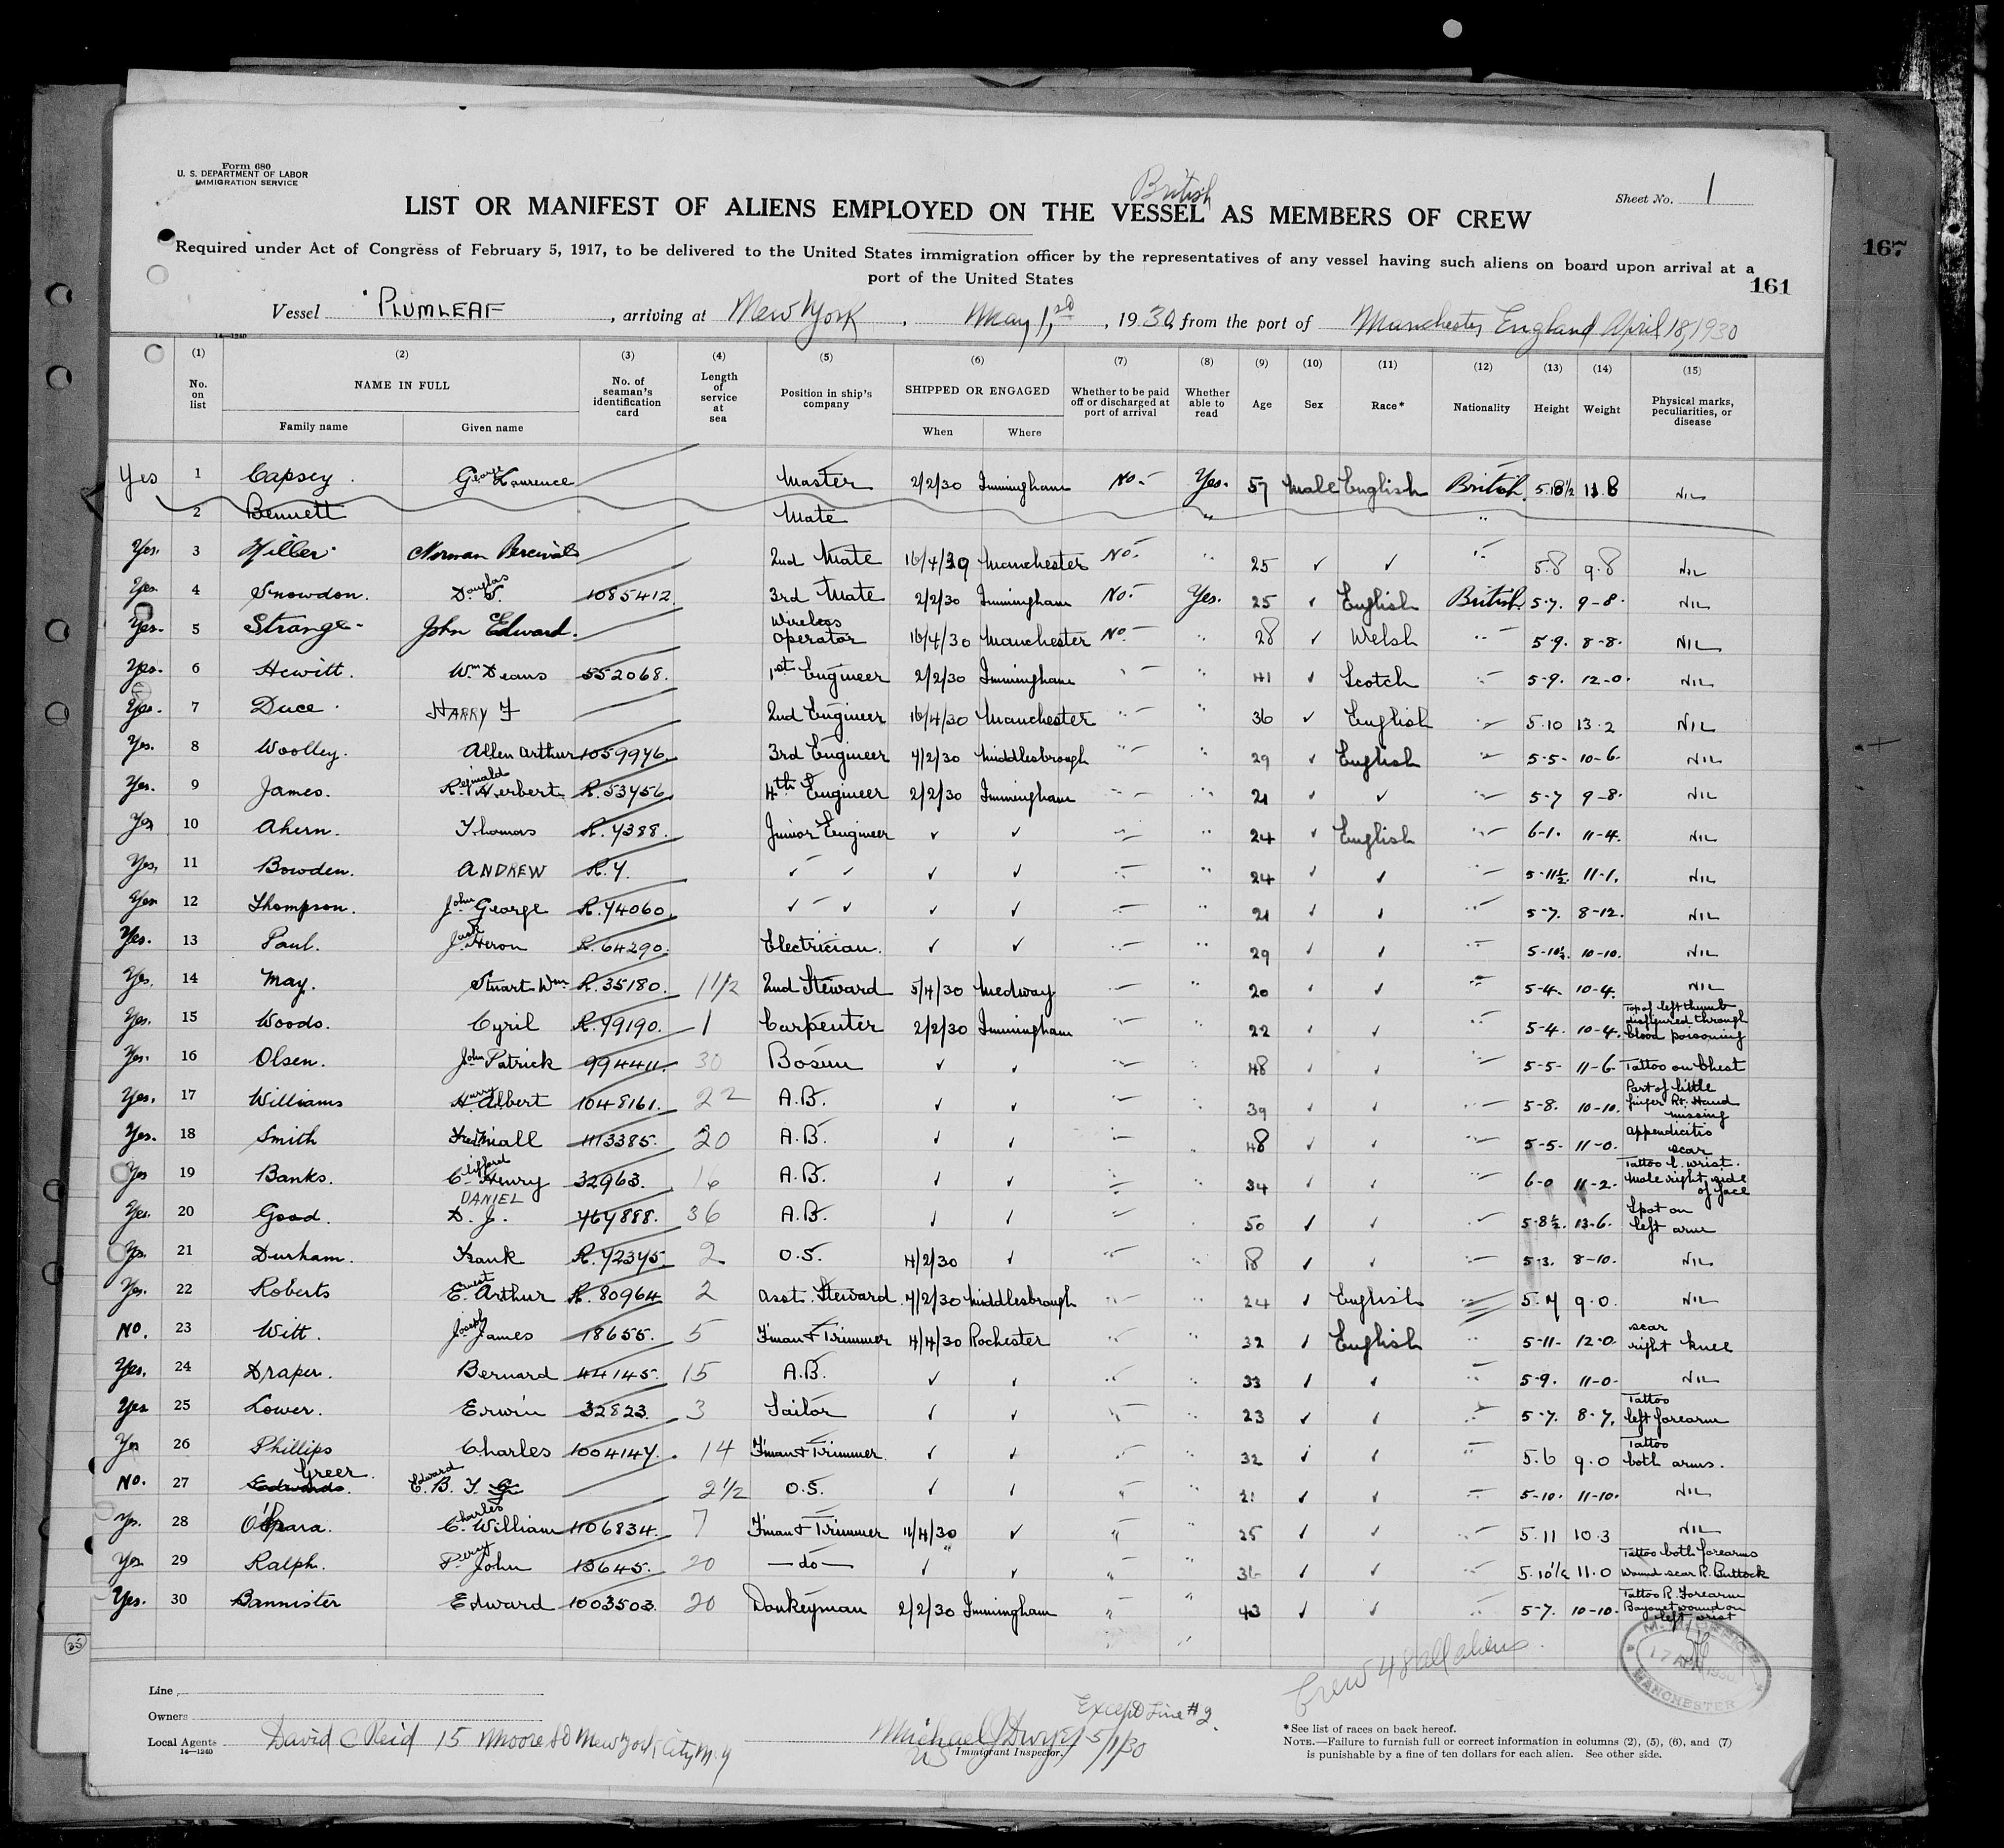 Form 680
U. S. DEPARTMENT OF LABOR
IMMIGRATION SERVICE
Sheet No. 1
British
LIST OR MANIFEST OF ALIENS EMPLOYED ON THE VESSEL AS MEMBERS OF CREW
Required under Act of Congress of February 5, 1917, to be delivered to the United States immigration officer by the representatives of any vessel having such aliens on board upon arrival at a
port of the United States
167
161
Vessel PLUMLEAF, arriving at New York, May 1, 1930, from the port of Manchester, England April 18, 1930
14—1240
(1) (2) (3) (4) (5) (6) (7) (8) (9) (10) (11) (12) (13) (14) (15)
No. on list NAME IN FULL No. of seaman's identification card Length of service at sea Position in ship's company SHIPPED OR ENGAGED Whether to be paid off or discharged at port of arrival Whether able to read Age Sex Race* Nationality Height Weight Physical marks, peculiarities, or disease
Family name Given name When Where
Yes 1 Capsey George Laurence Master 2/2/30 Immingham No.- Yes. 57 Male English British 5.8½ 11.8 NIL
2 Bennett Mate "
Yes. 3 Hiller Norman Percival 2nd Mate 16/4/30 Manchester No.- " 25 ✓ ✓ " 5.8 9.8 NIL
Yes. 4 Snowdon. Douglas S. 1085412 3rd Mate 2/2/30 Immingham No.- Yes. 25 ✓ English British 5-7. 9-8. NIL
Yes. 5 Strange John Edward. Wireless Operator 16/4/30 Manchester No.- " 28 ✓ Welsh " 5-9. 8-8. NIL
Yes. 6 Hewitt. Wm Deans 552068. 1st Engineer 2/2/30 Immingham " " 41 ✓ Scotch " 5-9. 12-0. NIL
Yes. 7 Duce HARRY F 2nd Engineer 16/4/30 Manchester " " 36 ✓ English " 5.10 13.2 NIL
Yes. 8 Woolley. Allen Arthur 1059976. 3rd Engineer 7/2/30 Middlesbrough " " 29 ✓ English " 5-5- 10-6. NIL
Yes. 9 James. Reginald Herbert R.53756 4th Engineer 2/2/30 Immingham " " 21 ✓ ✓ " 5-7 9-8. NIL
Yes 10 Ahern. Thomas R.7388. Junior Engineer ✓ ✓ " " 24 ✓ English " 6-1. 11-4. NIL
Yes, 11 Bowden. ANDREW R.7. ✓ ✓ ✓ ✓ " " 24 ✓ ✓ " 5-11½. 11-1. NIL
Yes 12 Thompson. John George R.74060. ✓ ✓ ✓ ✓ " " 21 ✓ ✓ " 5-7. 8-12. NIL
Yes. 13 Paul. Heron R.64290. Electrician. ✓ ✓ " " 29 ✓ ✓ " 5-10½. 10-10. NIL
Yes. 14 May. Stuart Wm R.35180. 1 1/2 2nd Steward 5/4/30 Medway " " 20 ✓ ✓ " 5-4. 10-4. NIL
Yes. 15 Woods. Cyril R.79190. 1 Carpenter 2/2/30 Immingham " " 22 ✓ ✓ " 5-4. 10-4. Top of left thumb disfigured through blood poisoning
Yes. 16 Olsen. John Patrick 994411. 30 Bosun ✓ ✓ " " 48 ✓ ✓ " 5-5- 11-6. Tattoo on Chest
Yes. 17 Williams Harry Albert 1048161. 22 A.B. ✓ ✓ " " 39 ✓ ✓ " 5-8. 10-10. Part of little finger Rt. Hand missing
Yes. 18 Smith Fred Niall 1113385. 20 A.B. ✓ ✓ " " 48 ✓ ✓ " 5-5- 11-0. Appendicitis scar
Yes 19 Banks. Clifford Henry 32963. 16 A.B. ✓ ✓ " " 34 ✓ ✓ " 6-0 11-2. Tattoo L. wrist. Mole right side of face
Yes. 20 Good. DANIEL D. J. 767888. 36 A.B. ✓ ✓ " " 50 ✓ ✓ " 5-8½. 13-6. Spot on left arm
Yes. 21 Durham. Frank R.72375. 2 O.S. 4/2/30 ✓ " " 18 ✓ ✓ " 5-3. 8-10. NIL
Yes. 22 Roberts Ernest Arthur R.80964 2 Asst. Steward. 7/2/30 Middlesbrough " " 24 ✓ English " 5.7 9.0. NIL
No. 23 Witt. Joseph James 18655. 5 F'man & Trimmer 4/4/30 Rochester " " 32 ✓ English " 5-11- 12-0. scar right knee
Yes. 24 Draper. Bernard 44145. 15 A.B. ✓ ✓ " " 33 ✓ ✓ " 5-9. 11-0- NIL
Yes 25 Lower. Erwin 32823. 3 Sailor ✓ ✓ " " 23 ✓ ✓ " 5-7. 8-7. Tattoo left forearm
Yes 26 Phillips Charles 1004147. 14 F'man & Trimmer ✓ ✓ " " 32 ✓ ✓ " 5.6 9.0 Tattoo both arms.
No. 27 Edwards. Greer. Edward E. B. T. G 2 1/2 O.S. ✓ ✓ " " 21 ✓ ✓ " 5-10. 11-10. NIL
Yes. 28 O'Hara. Charles William 1106834. 7 F'man & Trimmer 11/4/30 ✓ " " 25 ✓ ✓ " 5.11 10.3 NIL
Yes 29 Ralph. Percy John 13645. 20 —do— ✓ ✓ " " 36 ✓ ✓ " 5.10½ 11.0 Tattoo both forearms Wound scar R. Buttock
Yes. 30 Bannister Edward 1003503. 20 Donkeyman 2/2/30 Immingham " " 43 ✓ ✓ " 5-7. 10-10. Tattoo R. Forearm Bayonet wound on left wrist
35
Crew 48 all aliens
M. M. OFFICE
17 APR 1930
MANCHESTER
Line
Owners
Local Agents David C Reid 15 Moore St New York City N.Y
14—1240
Except Line #2.
Michael J Dwyer 5/1/30
US Immigrant Inspector.
*See list of races on back hereof.
NOTE.—Failure to furnish full or correct information in columns (2), (5), (6), and (7)
is punishable by a fine of ten dollars for each alien. See other side.